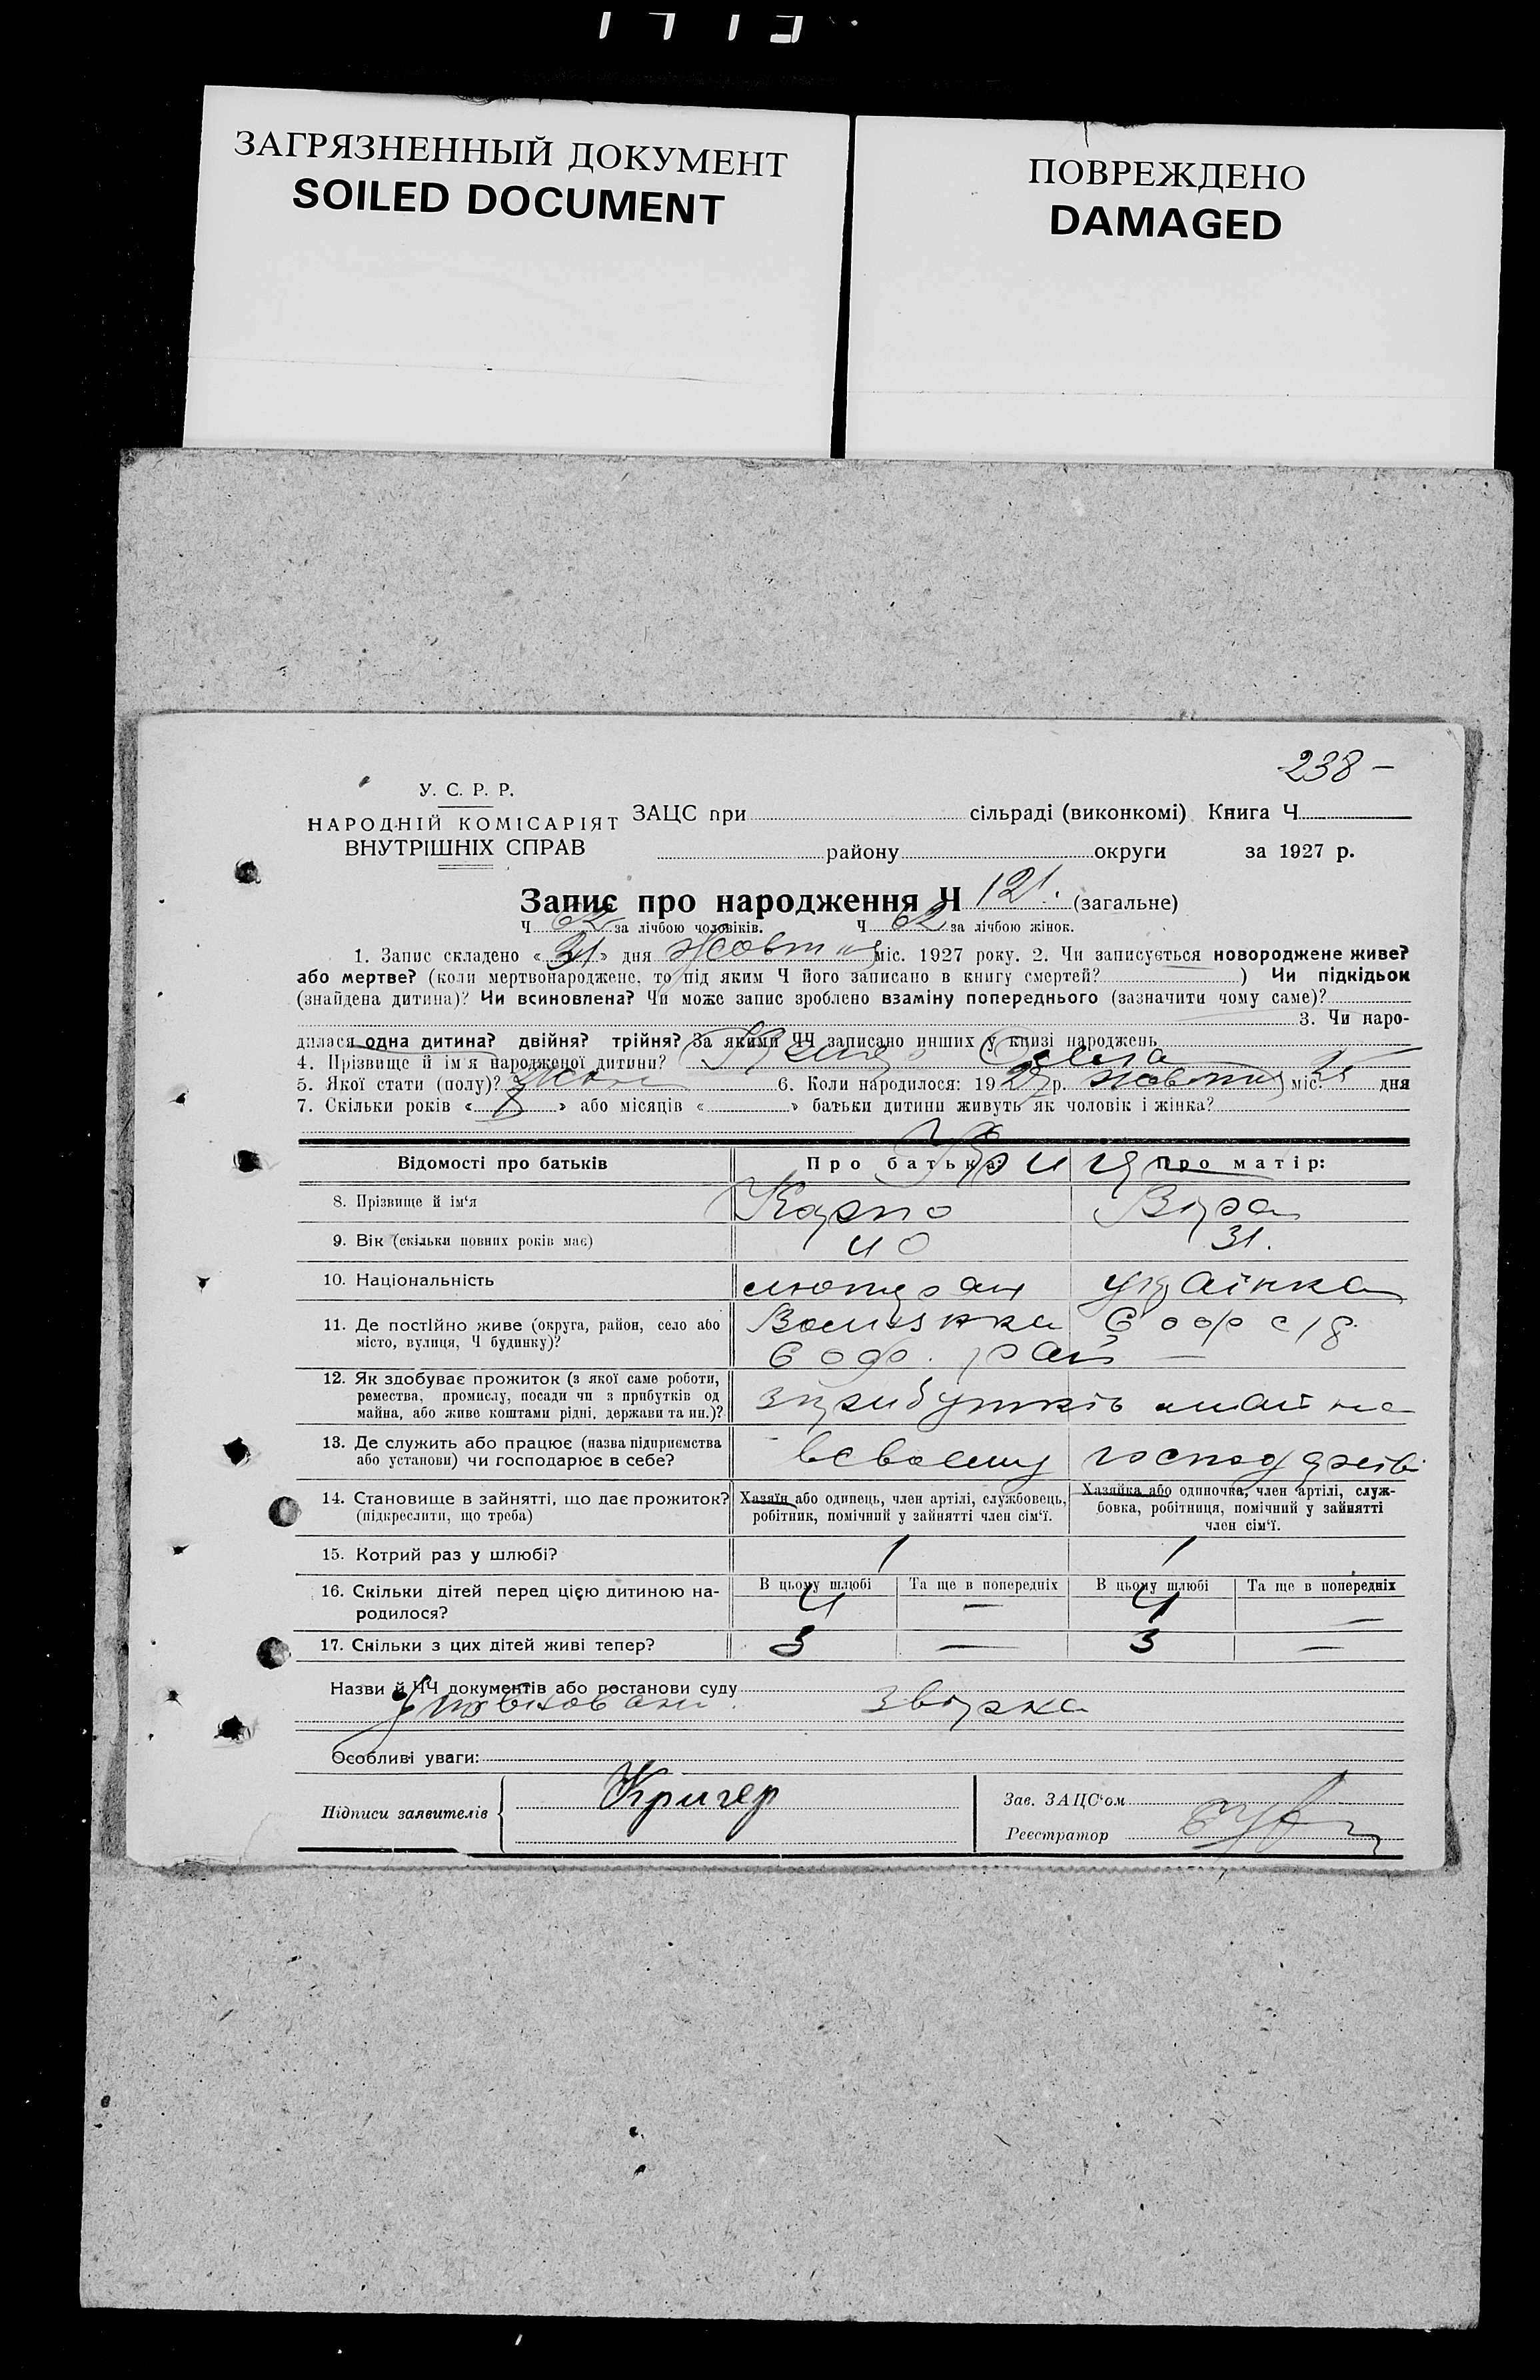 ЗАГРЯЗНЕННЫЙ ДОКУМЕНТ
SOILED DOCUMENT
ПОВРЕЖДЕНО
DAMAGED
238 –
У. С. Р. Р.
НАРОДНІЙ КОМІСАРІЯТ
ВНУТРІШНІХ СПРАВ
ЗАЦС при сільраді (виконкомі) Книга Ч
району округи за 1927 р.
Запис про народження Ч 121. (загальне)
Ч 62 за лічбою чоловіків. Ч 62 за лічбою жінок.
1. Запис складено «31» дня Жовтня міс. 1927 року. 2. Чи записується новороджене живе?
або мертве? (коли мертвонароджене, то під яким Ч його записано в книгу смертей? ) Чи підкідьок
(знайдена дитина)? Чи всиновлена? Чи може запис зроблено взаміну попереднього (зазначити чому саме)?
3. Чи наро-
дилася одна дитина? двійня? трійня? За якими ЧЧ записано инших у книзі народжень
4. Прізвище й ім'я народженої дитини?
5. Якої стати (полу)? 6. Коли народилося: 1927 р. жовтня міс. дня
7. Скільки років « » або місяців « » батьки дитини живуть як чоловік і жінка?
Відомості про батьків Про батька: Про матір:
8. Прізвище й ім'я Карпо Віра
9. Вік (скільки повних років має) 40 31.
10. Національність українка
11. Де постійно живе (округа, район, село або
місто, вулиця, Ч будинку)?
12. Як здобуває прожиток (з якої саме роботи,
ремества, промислу, посади чи з прибутків од
майна, або живе коштами рідні, держави та ин.)?
з прибутків майна
13. Де служить або працює (назва підприємства
або установи) чи господарює в себе?
в своєму господарстві
14. Становище в зайнятті, що дає прожиток?
(підкреслити, що треба)
Хазяїн або одинець, член артілі, службовець,
робітник, помічний у зайнятті член сім'ї.
Хазяйка або одиночка, член артілі, служ-
бовка, робітниця, помічний у зайнятті
член сім'ї.
15. Котрий раз у шлюбі? 1 1
16. Скільки дітей перед цією дитиною на-
родилося?
В цьому шлюбі Та ще в попередніх В цьому шлюбі Та ще в попередніх
4 — 4 —
17. Скільки з цих дітей живі тепер? 3 — 3 —
Назви й ЧЧ документів або постанови суду
Особливі уваги:
Підписи заявителів Кригер
Зав. ЗАЦС'ом
Реєстратор